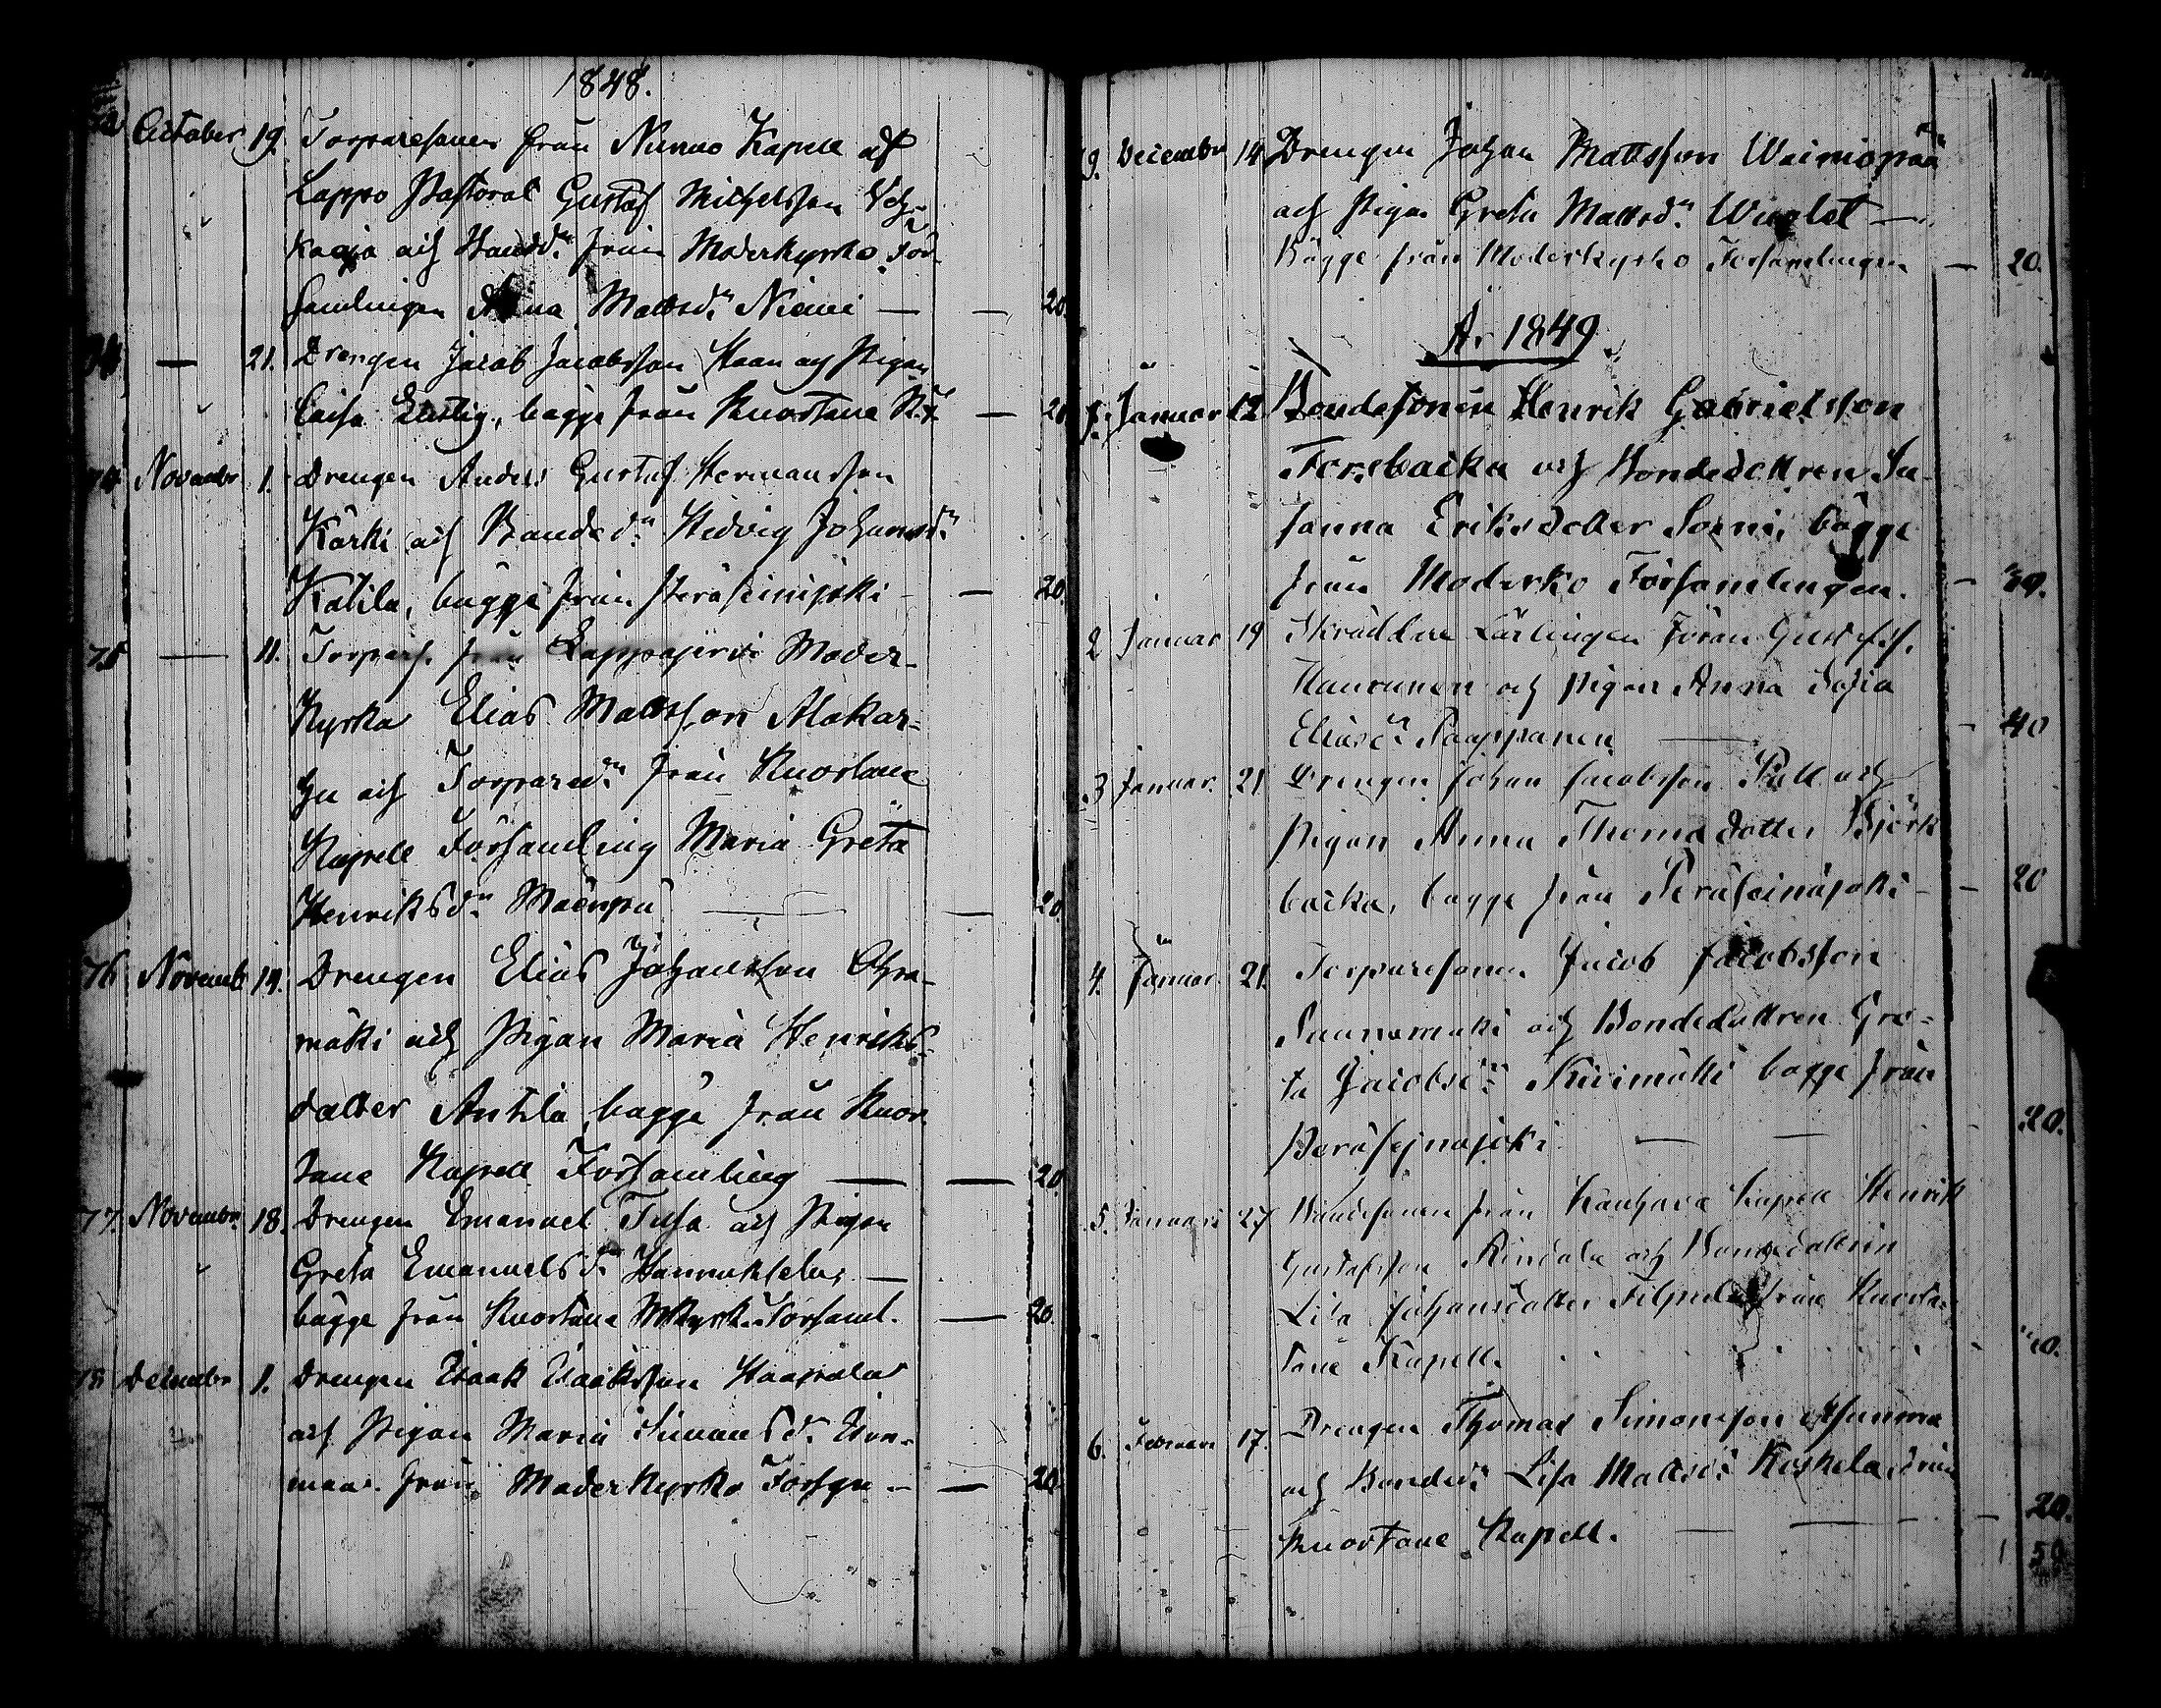 1848.
October 19. Torparesonen från Nurmo Kapell af
Lappo Pastorat Gustaf Michelsson
och Bonded:r från Moderkyrko För
samlingen Mattsd:r Niemi — — 20.
— 21. Drengen Jacob Jacobsson och Pigan
Caisa bägge från Kuortane — 20.
74 November 1. Drengen Anders Gustaf Hermansson
Kärki och Bonded:r Hedvig Johansd:r
Katila, bägge från Peräseinäjoki — 20.
75 — 11. Torpares. från Lappajervi Moder-
Kyrka Elias Mattsson Alakar-
hu och Torpared:r från Kuortane
Kapell Församling Maria Greta
Henriksd:r Mäenpä — — 20
76 Novemb 14. Drengen Elias Johansson
mäki och Pigan Maria Henriks-
dotter Antila bägge från Kuor
tane Kapell Församling — — 20.
77. November 18. Drengen Emanuel och Pigan
Greta Emanuelsd:r —
bägge från Kuortane Församl. — 20.
78 December 1. Drengen Isaak Isaaksson Haapala
och Pigan Maria Simonsd:r
från Moderkyrko — — 20.
9. December 14 Drengen Johan Mattsson Wainiopää
och Pigan Greta Mattsd:r —
Bägge från Moderkyrko Församlingen — 20.
År 1849
1. Januar 12 Bondesonen Henrik Gabrielsson
Forsbacka och Bondedottren Su-
sanna Eriksdotter Sorni, bägge
från Moderko Församlingen. — 20.
2 Januar 19 Skräddare Lärlingen Göran Gustafss.
och Pigan Anna Sofia
Eliasd:r Paappanen — — 40
3 Januar. 21 Drengen Johan Jacobsson och
Pigan Anna Thomasdotter Björk
backa, bägge från Peräseinäjoki — — 20
4. Januar. 21. Torparesonen Jacob Jacobsson
Saunamäki och Bondedottren Gre-
ta Jacobsd:r Kivimäki bägge från
Peräsejnäjoki — — 20.
5. Januari 27 Bondesonen från Kauhava Kapell Henrik
Gustafsson Rindala och Bondedottren
Lisa Johansdotter från Kuor
tane Kapell. 20.
6. Februari 17. Drengen Thomas Simonsson
och Bonded:r Lisa Mattsd:r Koskela från
Kuortane Kapell. — — 20.
1 50